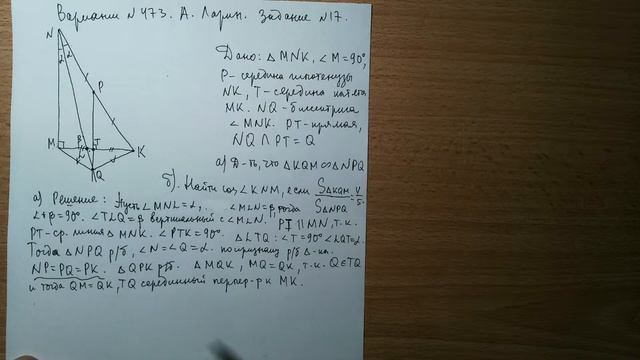 Вариант №473. А. Ларин. Задание №17.
N
2 2
P
M
B
T
K
L
Q
Дано: Δ MNK, ∠M=90°,
P- середина гипотенузы
NK, T- середина катета
MK. NQ - биссектриса
∠MNK. PT- прямая,
NQ ∩ PT = Q
а) Д-ть, что Δ KQM ∾ Δ NPQ
б). Найти cos ∠KNM, если SΔKQM / SΔNPQ = 4/5.
а) Решение: Пусть ∠MNL = α, ∠MLN = β, тогда
α+β=90°. ∠TLQ = β вертикальный с ∠MLN. PT || MN, т.к.
PT- ср. линия Δ MNK. ∠PTK = 90°. Δ LTQ: ∠T=90° ∠LQT=α.
Тогда Δ NPQ р/б, ∠N=∠Q=α. по признаку р/б Δ-ка.
NP=PQ=PK. Δ QPK р/б. Δ MQK, MQ=QK, т.к. Q∈TQ
и тогда QM=QK, TQ серединный перпер-р к MK.